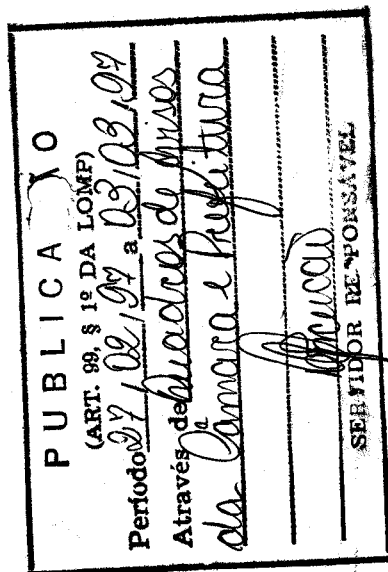 PUBLICA ÃO
(ART. 99, § 1º DA LOMP)
Período 27/02/97 a 03/03/97
Através de Quadros de Avisos
da Câmara e Prefeitura
SERVIDOR RESPONSÁVEL